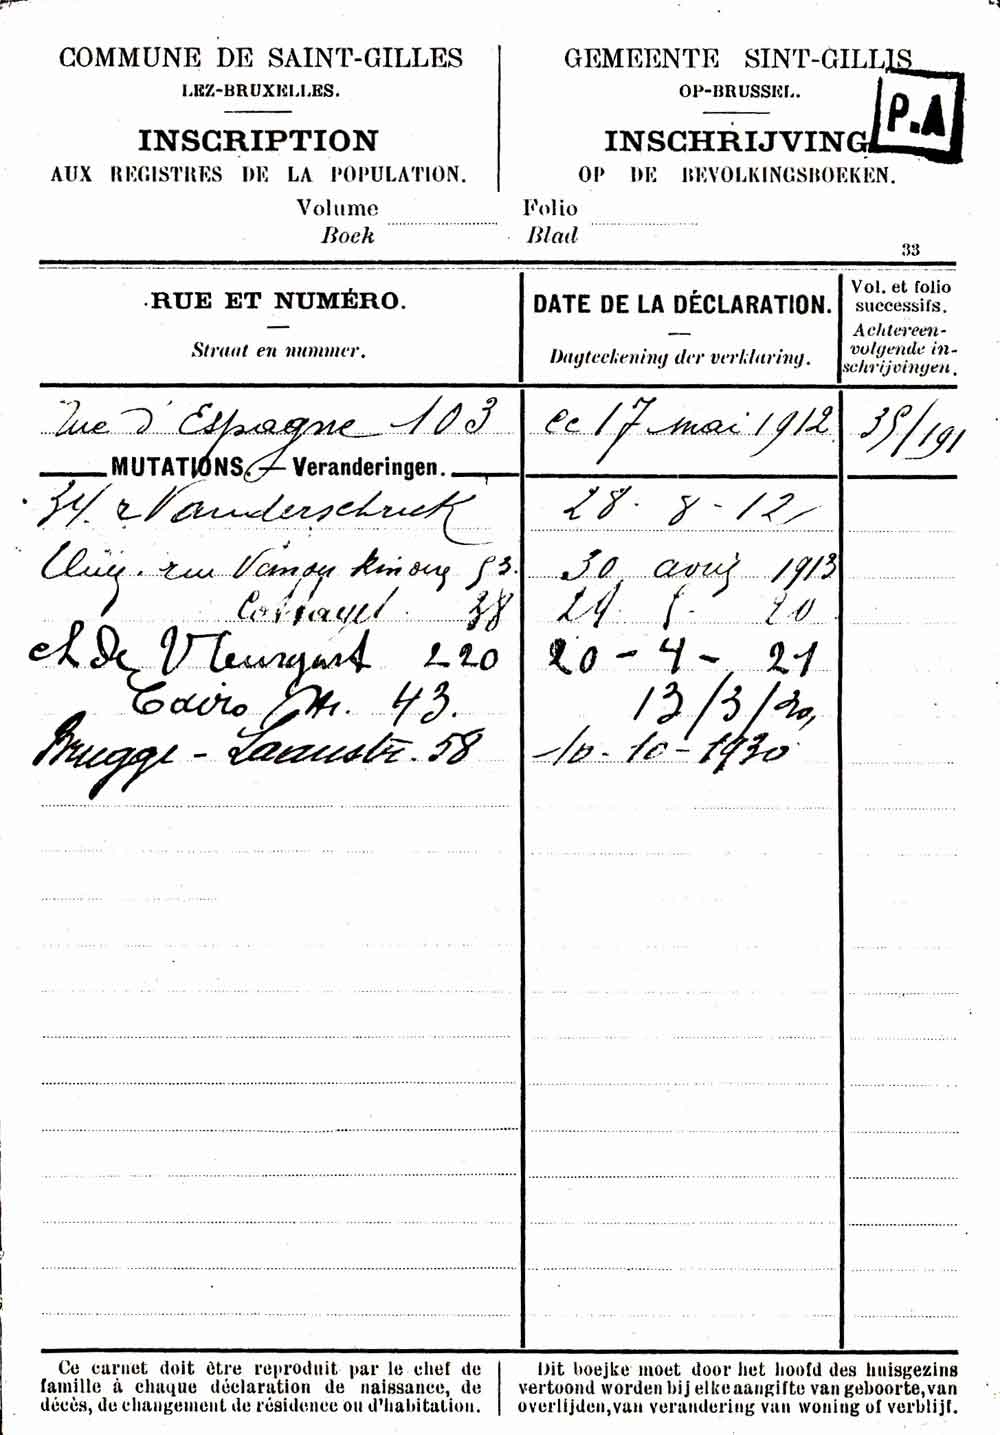 COMMUNE DE SAINT-GILLES
LEZ-BRUXELLES.
INSCRIPTION
AUX REGISTRES DE LA POPULATION.
GEMEENTE SINT-GILLIS
OP-BRUSSEL.
INSCHRIJVING
OP DE BEVOLKINGSBOEKEN.
P.A
Volume Folio
Boek Blad
33
RUE ET NUMÉRO.
Straat en nummer.
DATE DE LA DÉCLARATION.
Dagteekening der verklaring.
Vol. et folio
successifs.
Achtereen-
volgende in-
schrijvingen.
Rue d'Espagne 103 ce 17 mai 1912 35/191
MUTATIONS. — Veranderingen.
34. r Vanderschrick 28. 8 - 12
rue 53. 30 avril 1913
38 20
ch de Vleurgat 220 20 - 4 - 21
Cairo str. 43. 13/3/30,
Brugge - Laanstr. 58 10 - 10 - 1930
Ce carnet doit être reproduit par le chef de
famille à chaque déclaration de naissance, de
décès, de changement de résidence ou d'habitation.
Dit boejke moet door het hoofd des huisgezins
vertoond worden bij elke aangifte van geboorte, van
overlijden, van verandering van woning of verblijf.